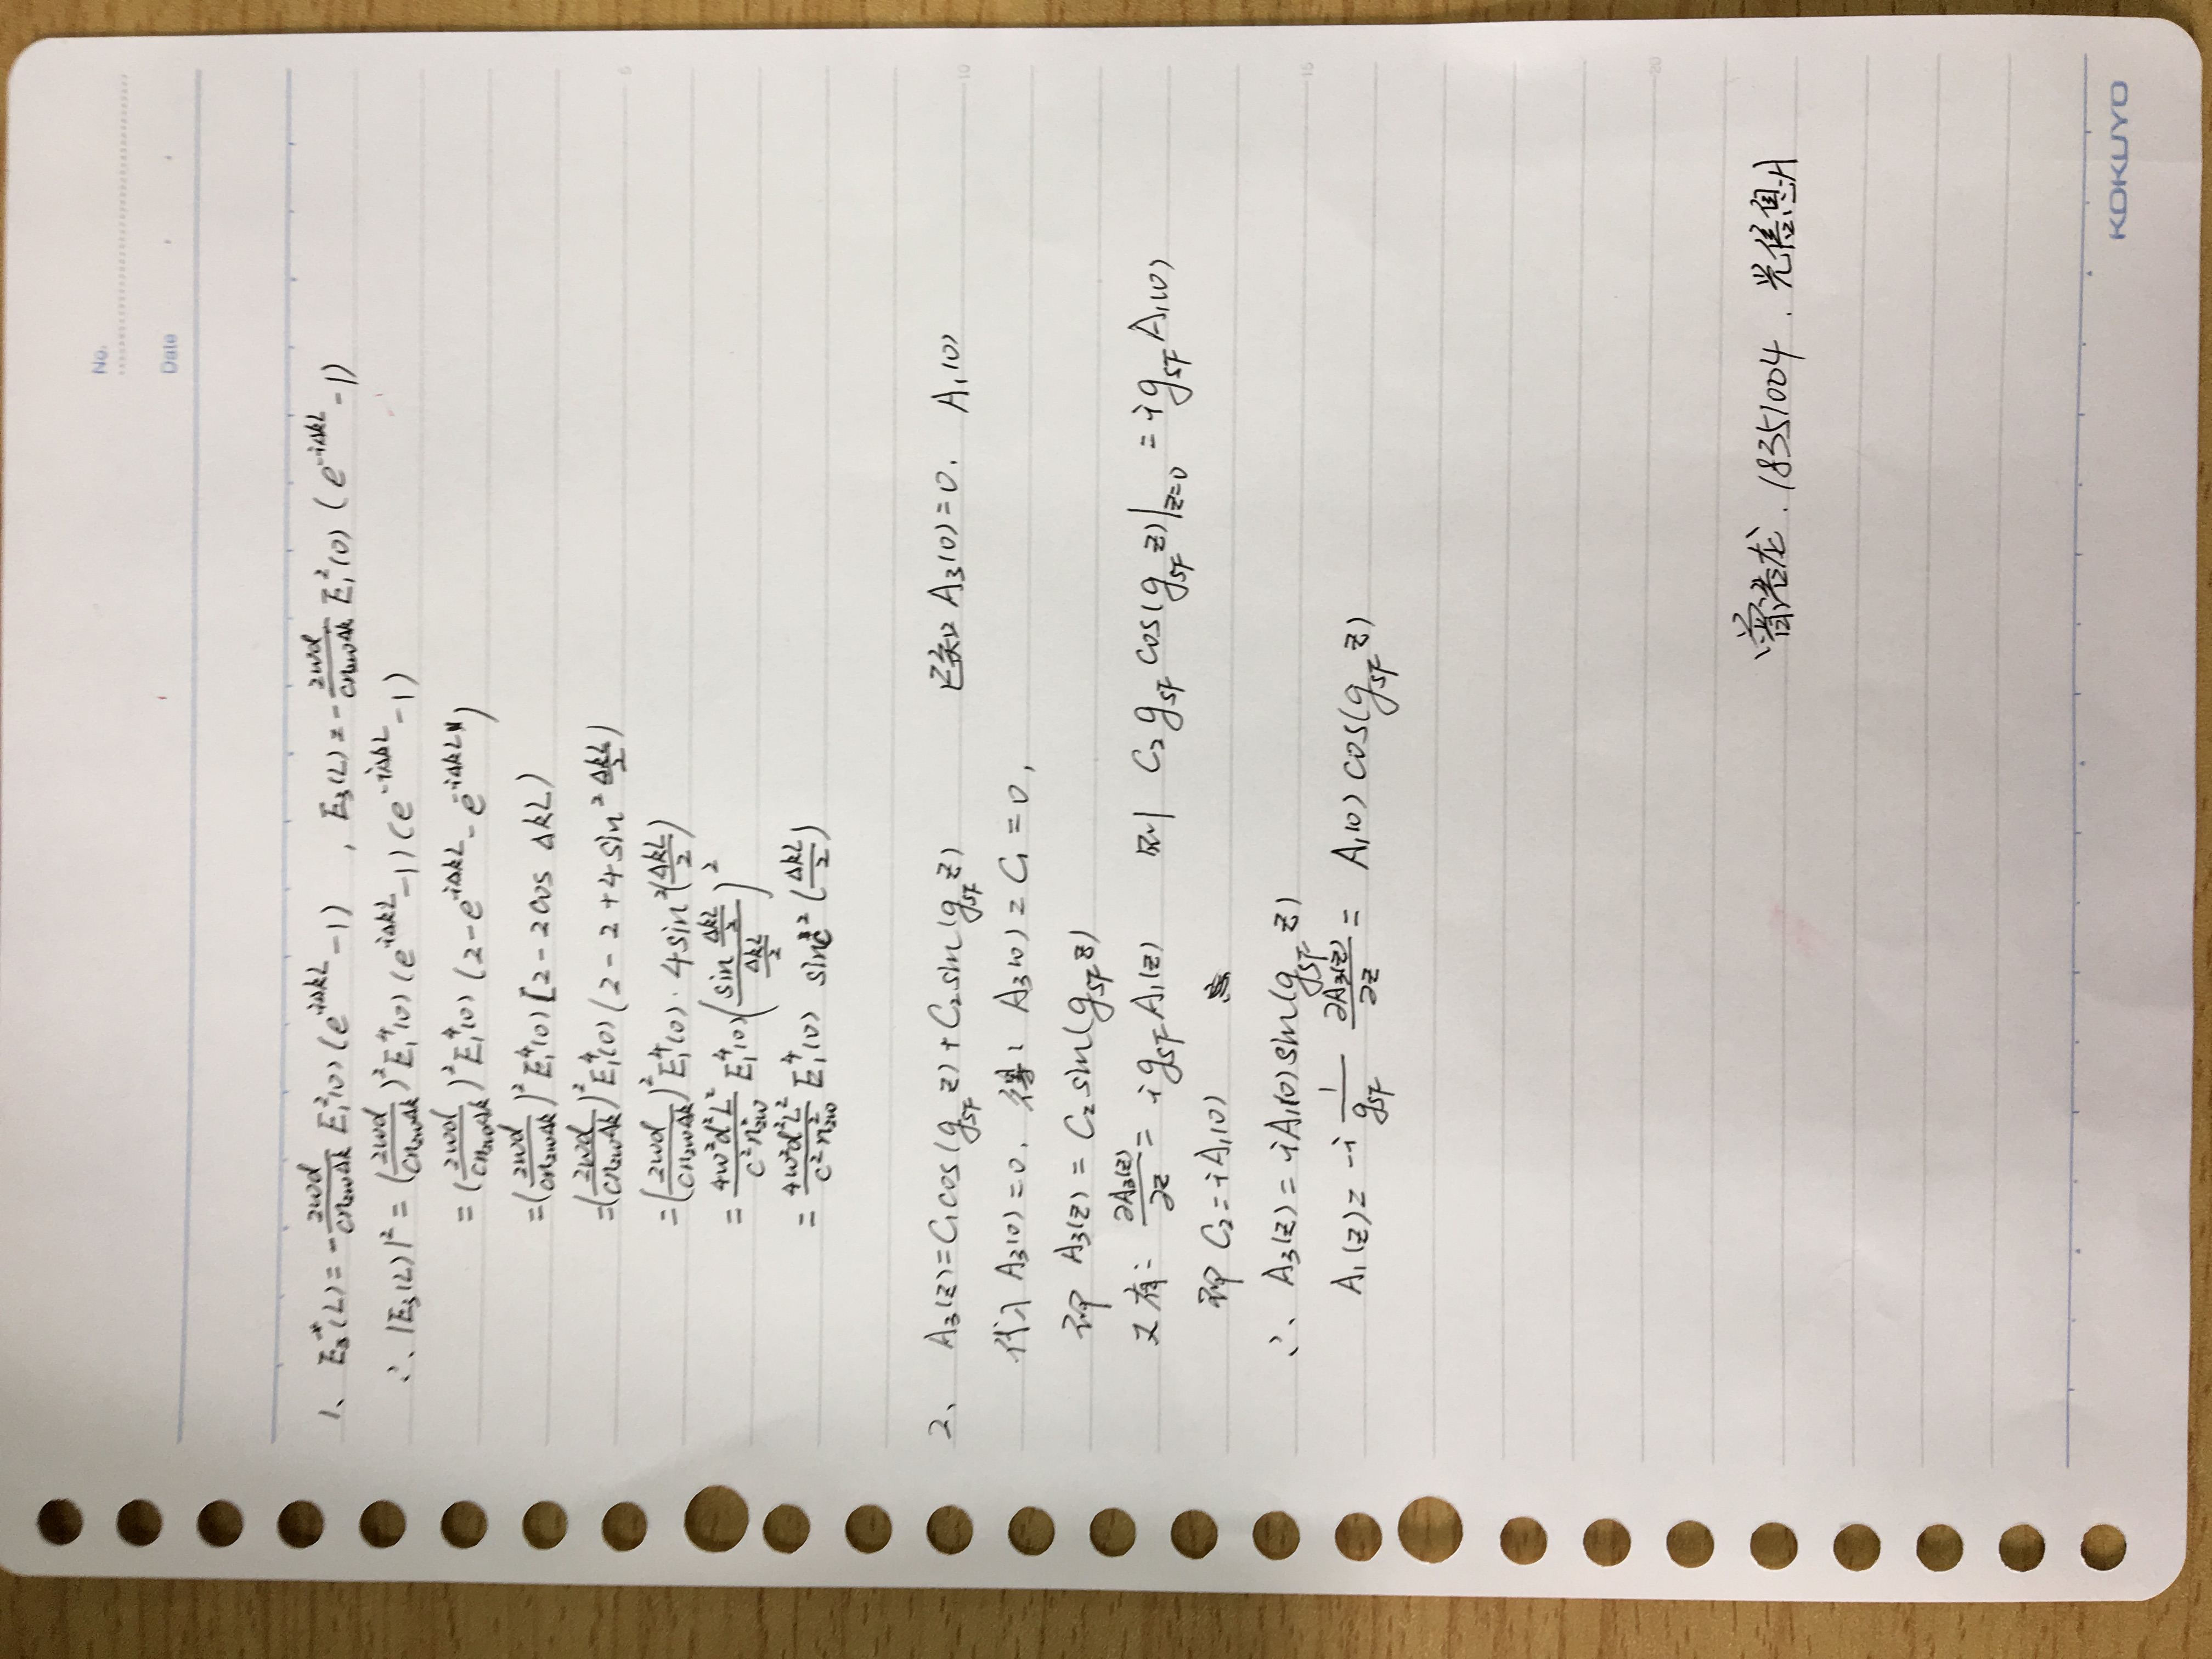 No.
Date
1、 E₃*(L) = -\frac{2ωd}{cn_{2ω}Δk} E₁²(0) (e^{iΔkL} - 1) , E₃(L) = -\frac{2ωd}{cn_{2ω}Δk} E₁²(0) (e^{-iΔkL} - 1)
∴ |E₃(L)|² = (\frac{2ωd}{cn_{2ω}Δk})² E₁⁴(0) (e^{iΔkL} - 1)(e^{-iΔkL} - 1)
= (\frac{2ωd}{cn_{2ω}Δk})² E₁⁴(0) (2 - e^{iΔkL} - e^{-iΔkL})
= (\frac{2ωd}{cn_{2ω}Δk})² E₁⁴(0) [2 - 2cos ΔkL)
= (\frac{2ωd}{cn_{2ω}Δk})² E₁⁴(0) (2 - 2 + 4sin² \frac{ΔkL}{2})
= (\frac{2ωd}{cn_{2ω}Δk})² E₁⁴(0) · 4sin²(\frac{ΔkL}{2})
= \frac{4ω²d²L²}{c²n²_{2ω}} E₁⁴(0) (\frac{sin \frac{ΔkL}{2}}{\frac{ΔkL}{2}})²
= \frac{4ω²d²L²}{c²n²_{2ω}} E₁⁴(0) sinc² (\frac{ΔkL}{2})
2、 A₃(z) = C₁cos(g_{SF} z) + C₂sin(g_{SF} z) 已知 A₃(0) = 0. A₁(0)
代入 A₃(0) = 0. 得: A₃(0) = C₁ = 0,
即 A₃(z) = C₂ sin(g_{SF} z)
又有: \frac{∂A₃(z)}{∂z} = i g_{SF} A₁(z) 则 C₂ g_{SF} cos(g_{SF} z)|_{z=0} = i g_{SF} A₁(0)
即 C₂ = iA₁(0)
∴ A₃(z) = iA₁(0) sin(g_{SF} z)
A₁(z) = -i \frac{1}{g_{SF}} \frac{∂A₃(z)}{∂z} = A₁(0) cos(g_{SF} z)
曾浩龙 . 18351004 . 光信息A
5
10
15
20
KOKUYO